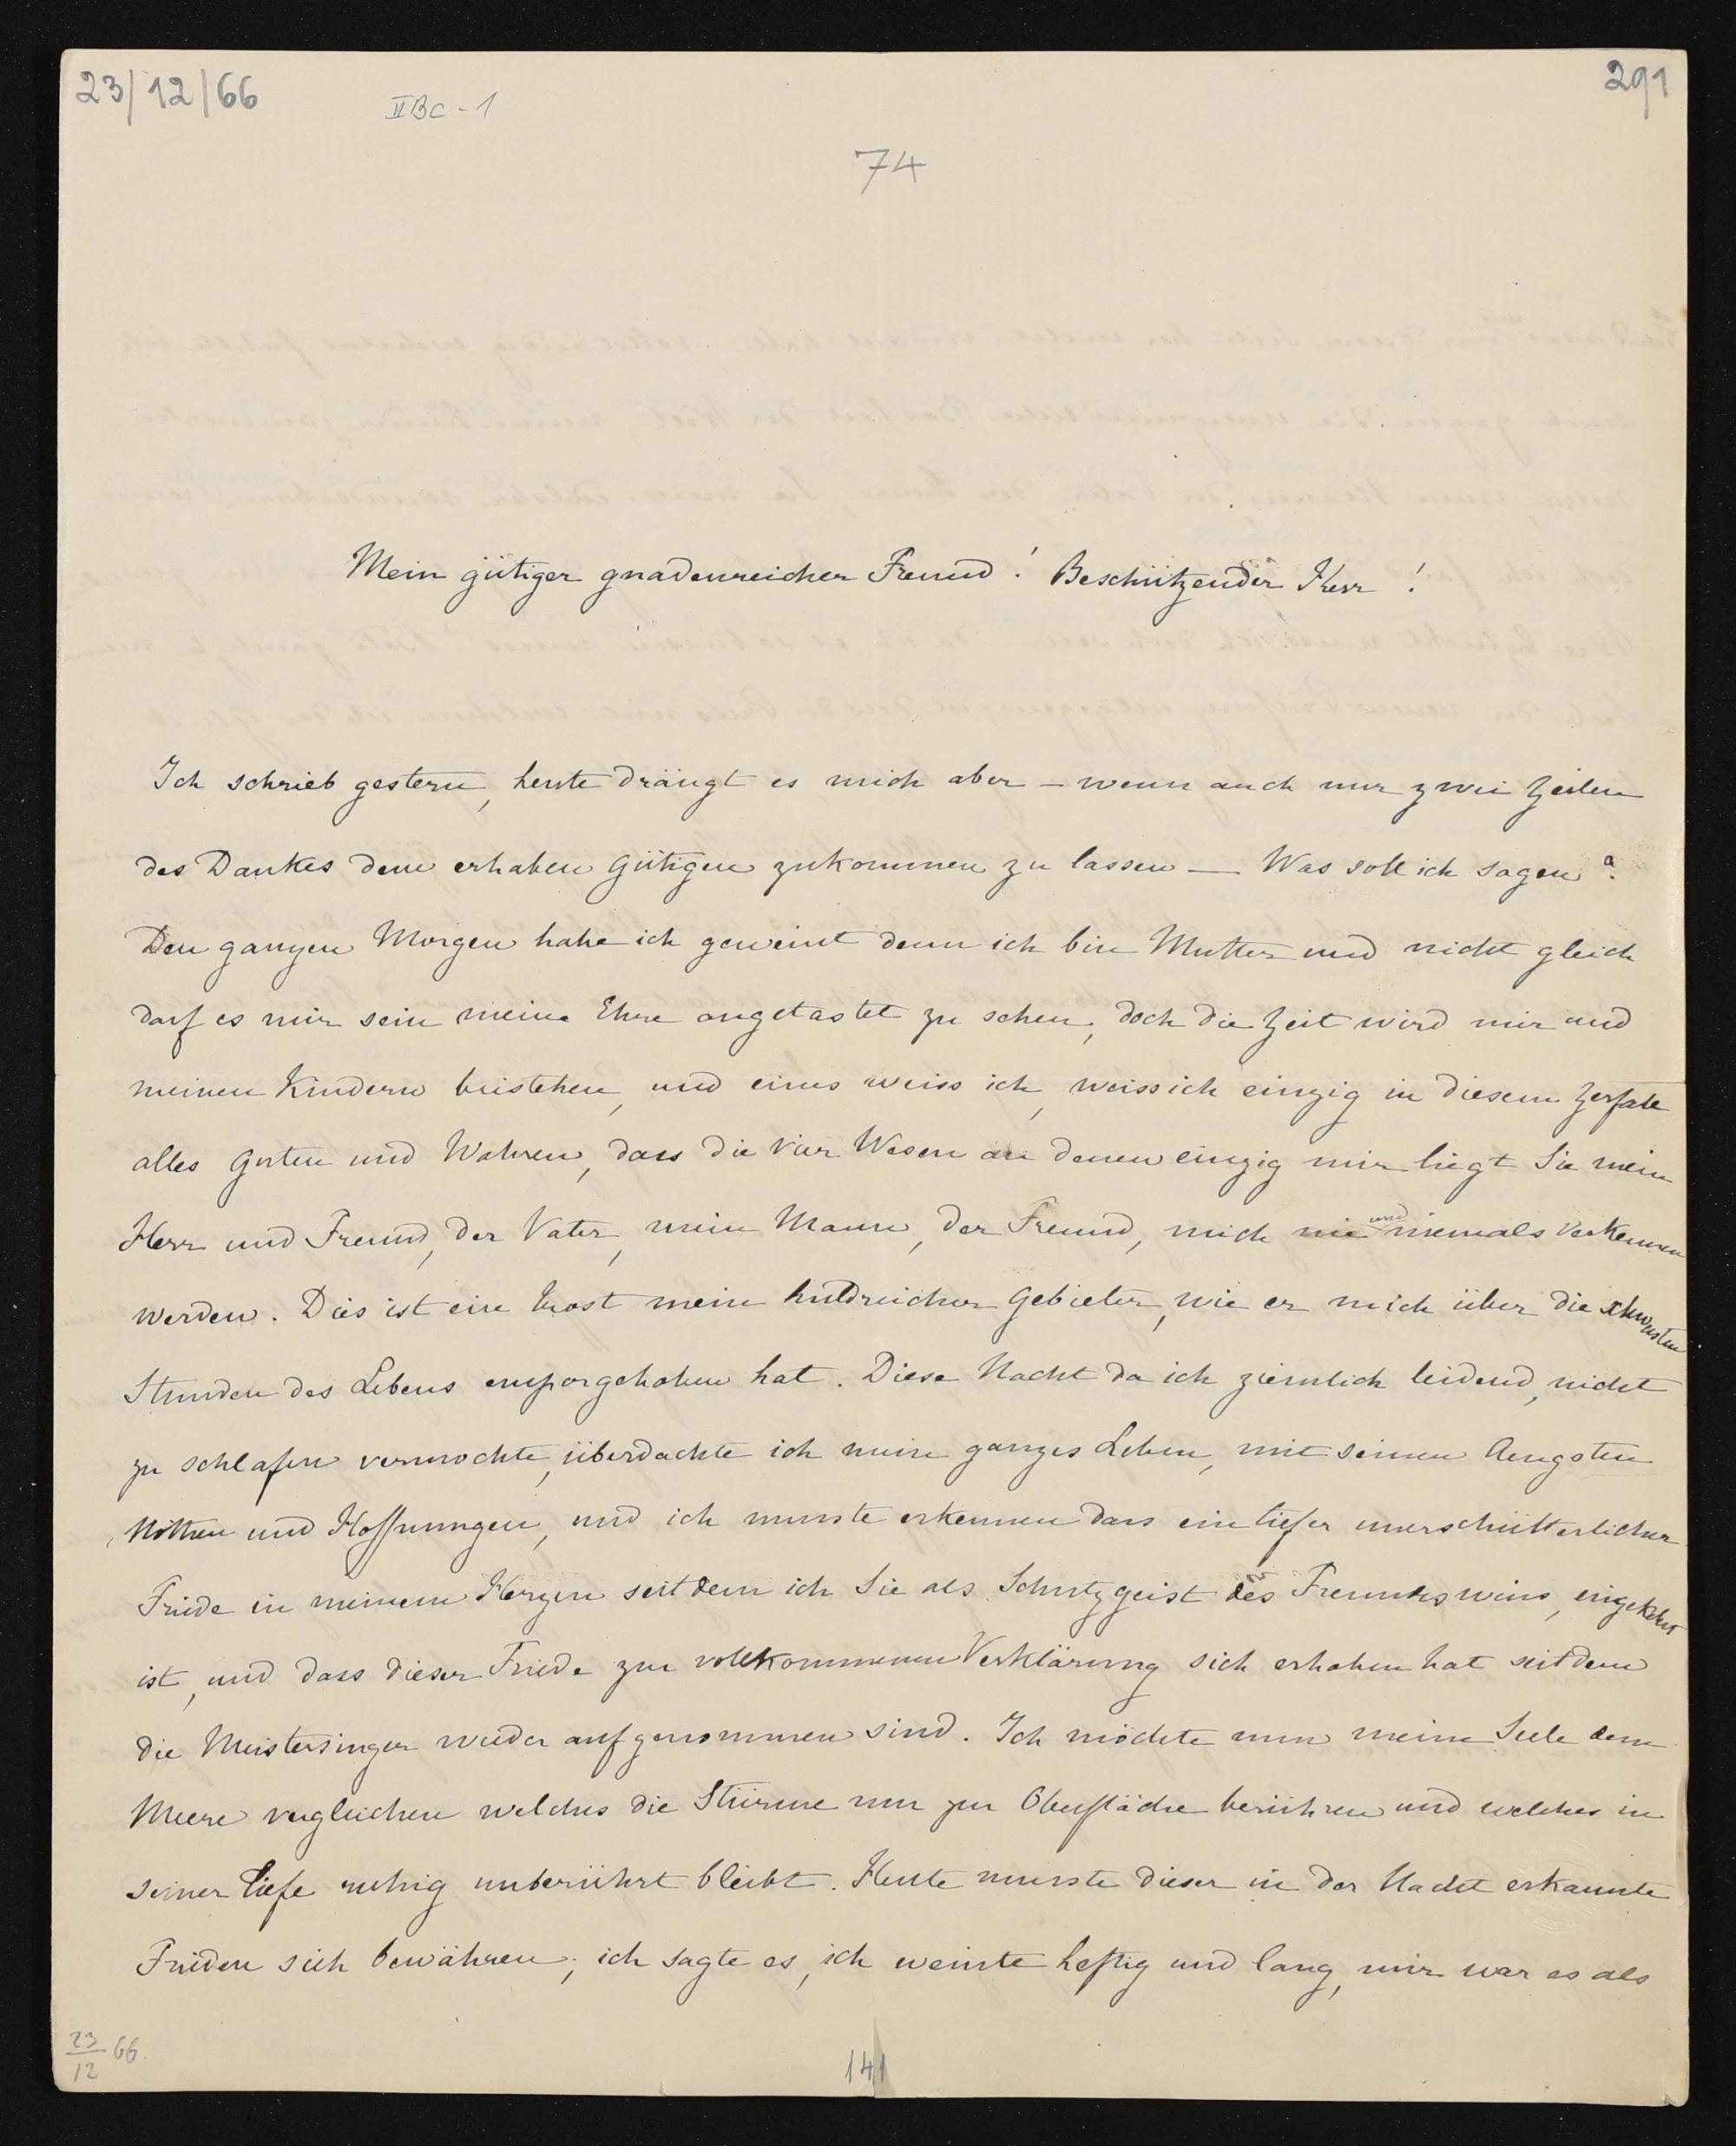 23/12/66
II Bc - 1
291
74
Mein gütiger gnadenreicher Freund! Beschützender Herr!
Ich schrieb gestern, heute drängt es mich aber – wenn auch nur zwei Zeilen
des Dankes dem erhaben Gütigen zukommen zu lassen — Was soll ich sagen?
Den ganzen Morgen habe ich geweint denn ich bin Mutter und nicht gleich
darf es mir sein meine Ehre angetastet zu sehen, doch die Zeit wird mir und
meinen Kindern beistehen, und eines weiss ich, weiss ich einzig in diesem Zerfall
alles Guten und Wahren, dass die vier Wesen an denen einzig mir liegt Sie mein
Herr und Freund, der Vater, mein Mann, der Freund, mich nie und niemals verkennen
werden. Dies ist ein Trost mein huldreicher Gebieter, wie er mich über die schwersten
Stunden des Lebens emporgehoben hat. Diese Nacht da ich ziemlich leidend, nicht
zu schlafen vermochte, überdachte ich mein ganzes Leben, mit seinen Aengsten
Nöthen und Hoffnungen, und ich musste erkennen dass ein tiefer unerschütterlicher
Friede in meinem Herzen seitdem ich Sie als Schutzgeist des Freundes weiss, eingekehrt
ist, und dass dieser Friede zur vollkommenen Verklärung sich erhoben hat seitdem
die Meistersinger wieder aufgenommen sind. Ich möchte nun meine Seele dem
Meere vergleichen welches die Stürme nur zur Oberfläche berühren und welches in
seiner Tiefe ruhig unberührt bleibt. Heute musste dieser in der Nacht erkannte
Frieden sich bewähren; ich sagte es, ich weinte heftig und lang, mir war es als
23/12 66.
141